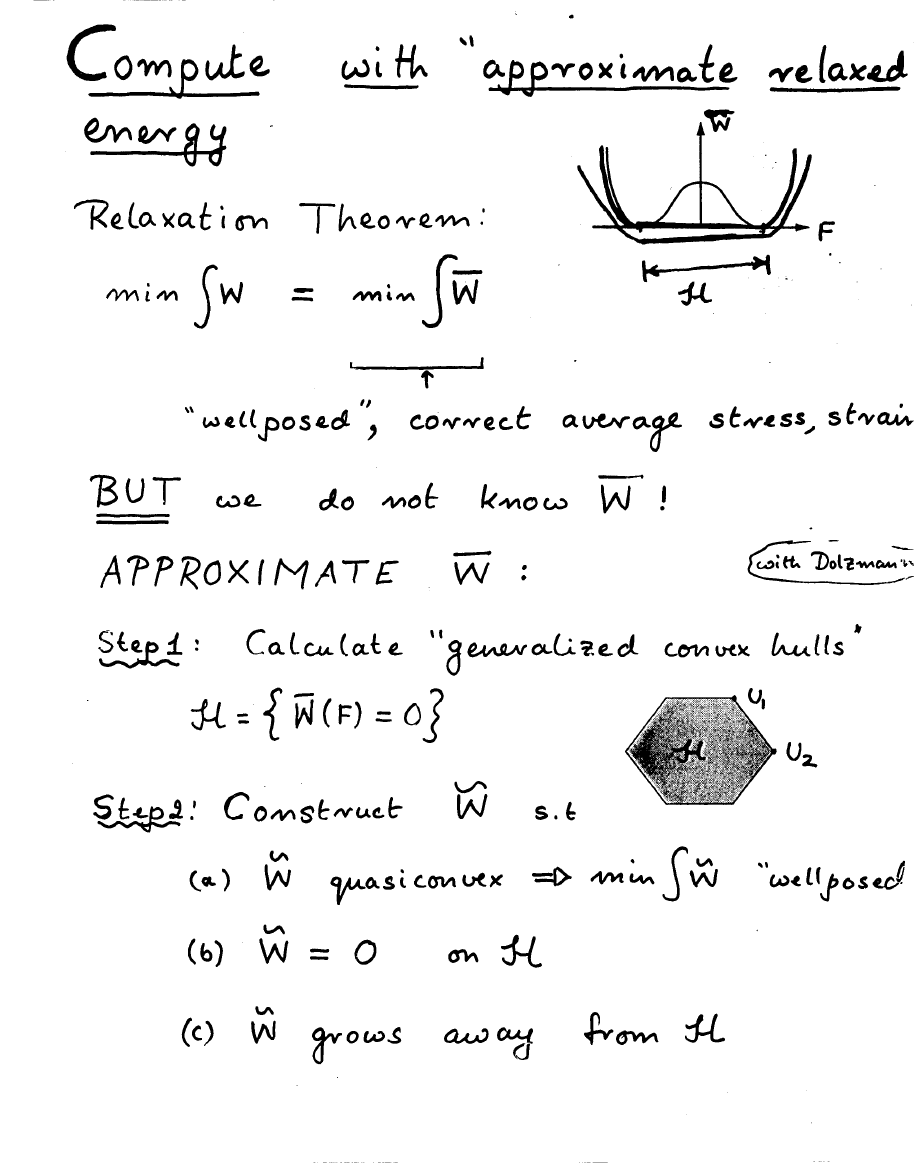 Compute with "approximate relaxed
energy
W̅
F
ℋ
Relaxation Theorem:
min ∫W = min ∫W̅
↑
"wellposed", correct average stress, strain
BUT we do not know W̅ !
APPROXIMATE W̅ :
(with Dolzmann
Step 1: Calculate "generalized convex hulls"
ℋ = { W̅(F) = 0}
U₁
ℋ
U₂
Step 2: Construct W̃ s.t
(a) W̃ quasiconvex ⇒ min ∫W̃ "wellposed
(b) W̃ = 0 on ℋ
(c) W̃ grows away from ℋ